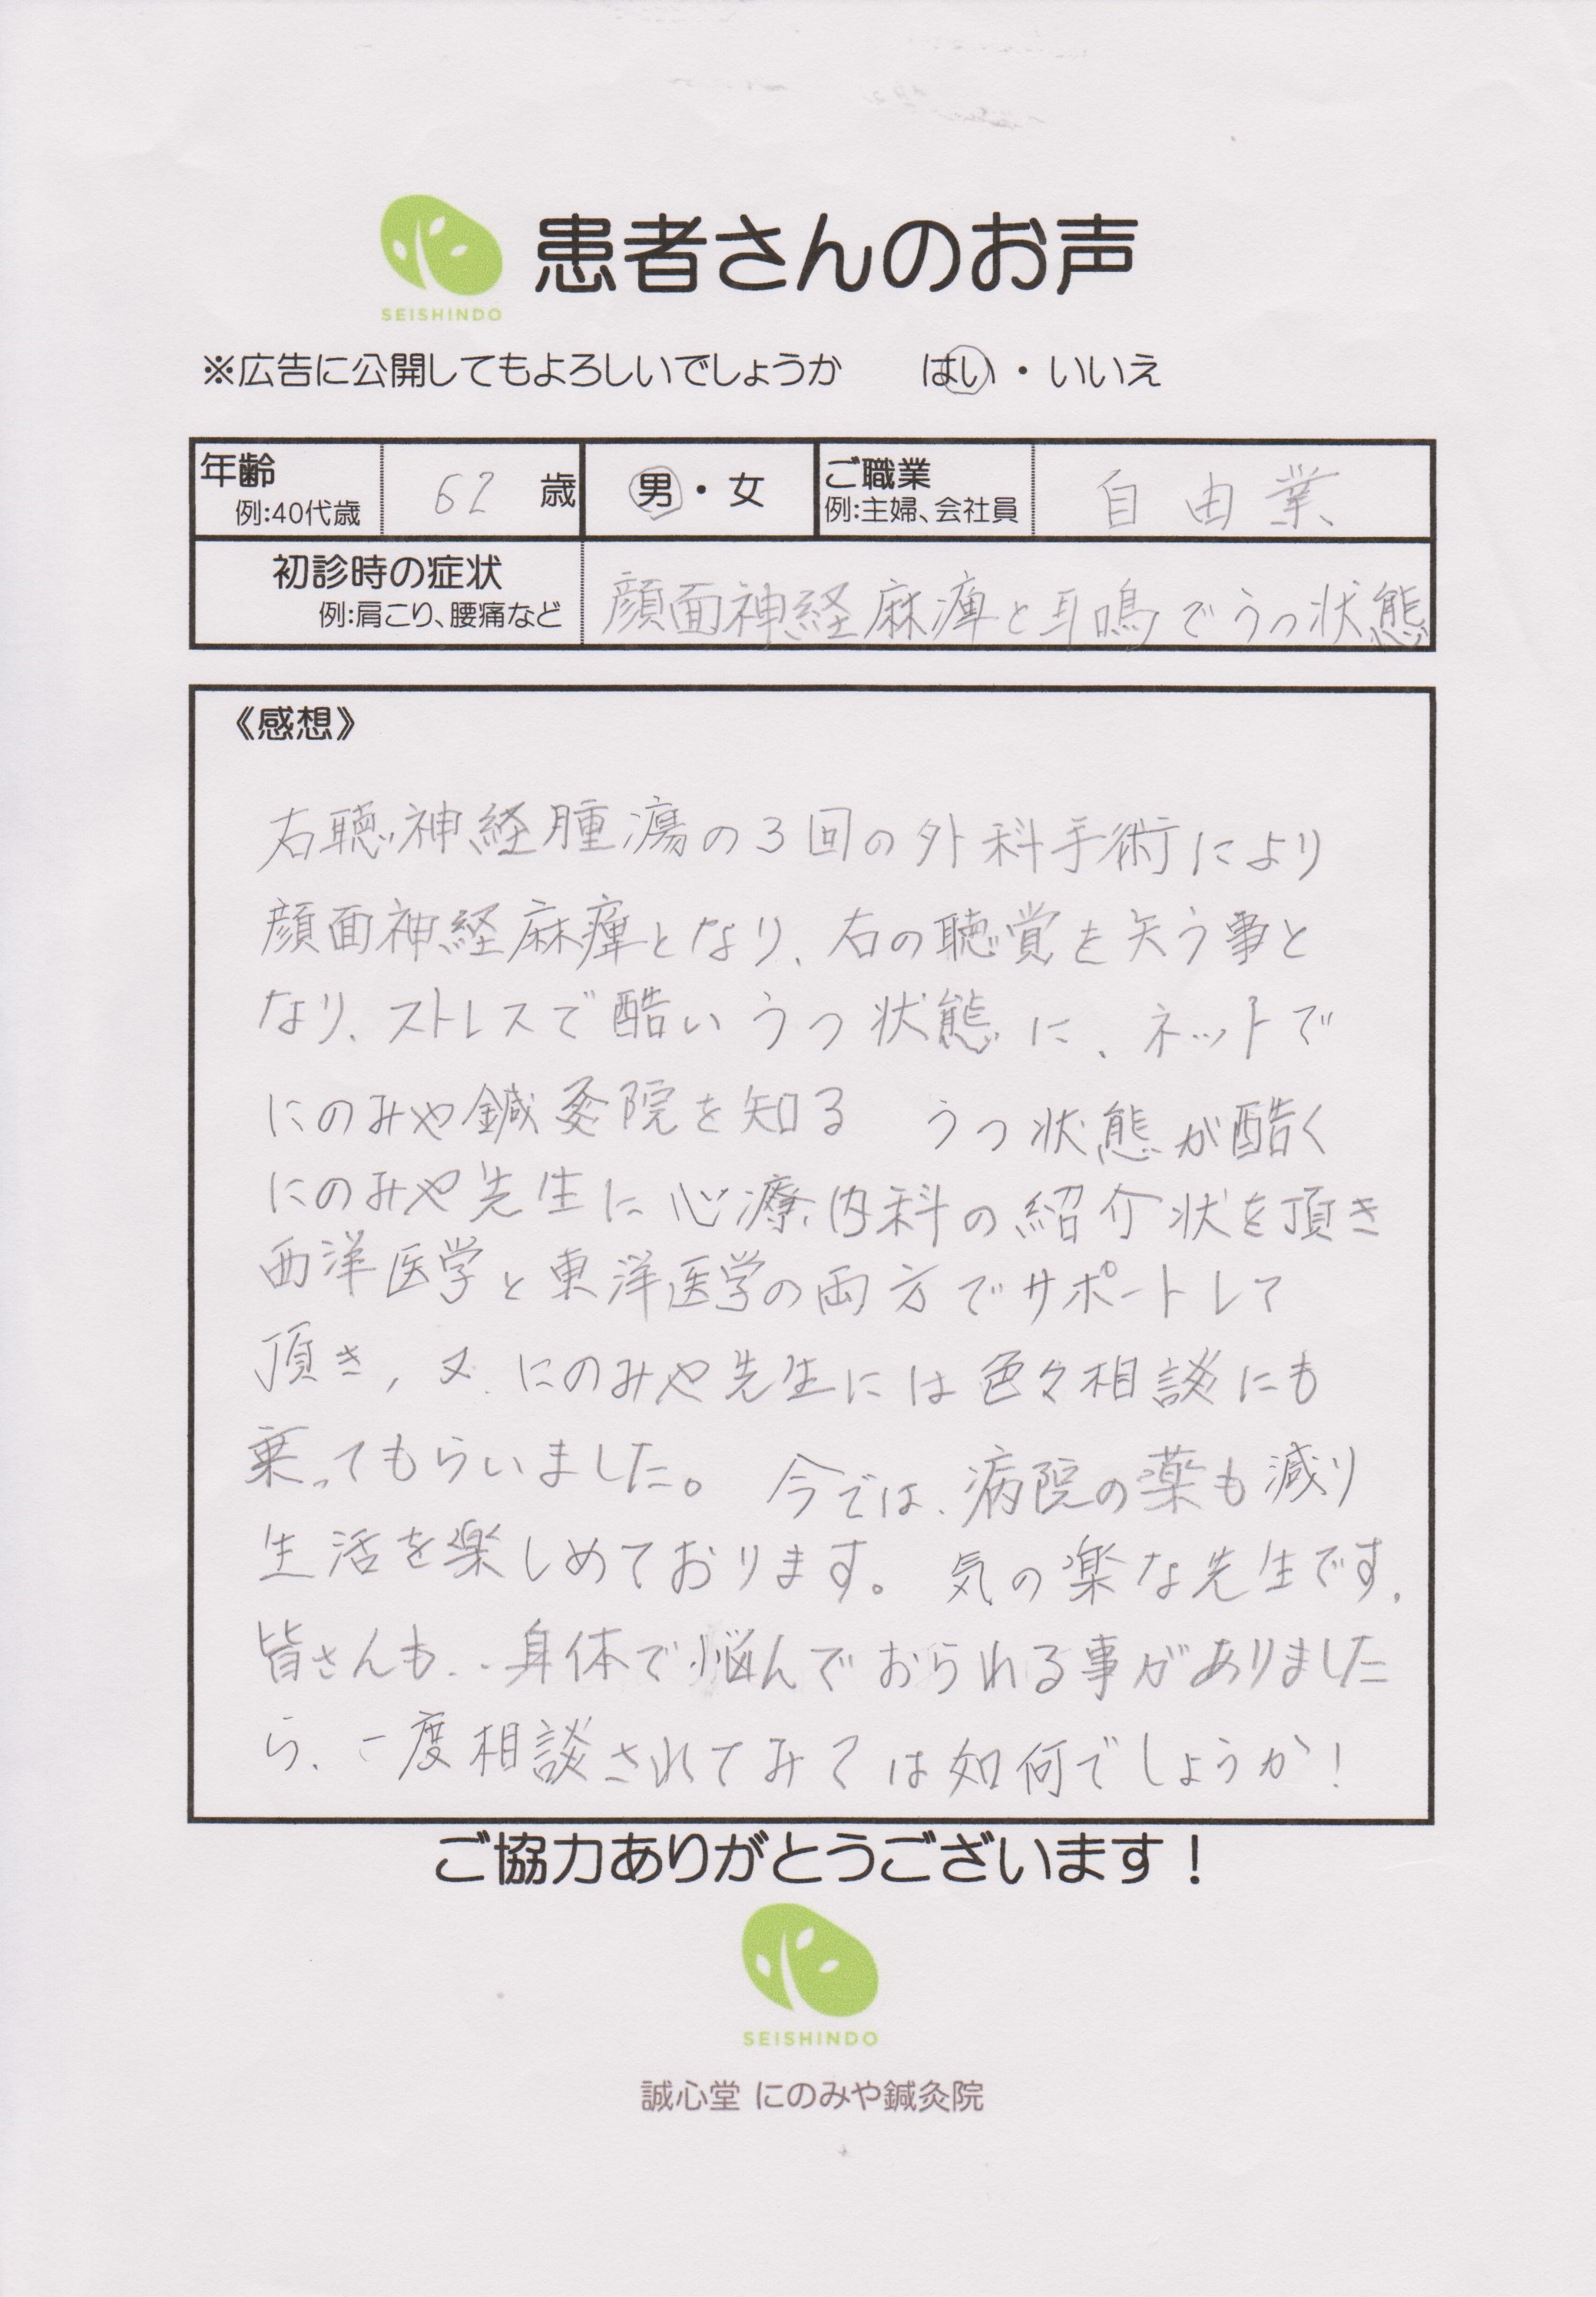 患者さんのお声
SEISHINDO
※広告に公開してもよろしいでしょうか はい・いいえ
年齢 例:40代歳 62 歳 男・女 ご職業 例:主婦、会社員 自由業
初診時の症状 例:肩こり、腰痛など 顔面神経麻痺と耳鳴でうつ状態
《感想》
右聴神経腫瘍の3回の外科手術により
顔面神経麻痺となり、右の聴覚を失う事と
なり、ストレスで酷いうつ状態に、ネットで
にのみや鍼灸院を知る うつ状態が酷く
にのみや先生に心療内科の紹介状を頂き
西洋医学と東洋医学の両方でサポートして
頂き、又、にのみや先生には色々相談にも
乗ってもらいました。今では、病院の薬も減り
生活を楽しめております。気の楽な先生です。
皆さんも、身体で悩んでおられる事がありました
ら、一度相談されてみては如何でしょうか!
ご協力ありがとうございます!
SEISHINDO
誠心堂 にのみや鍼灸院